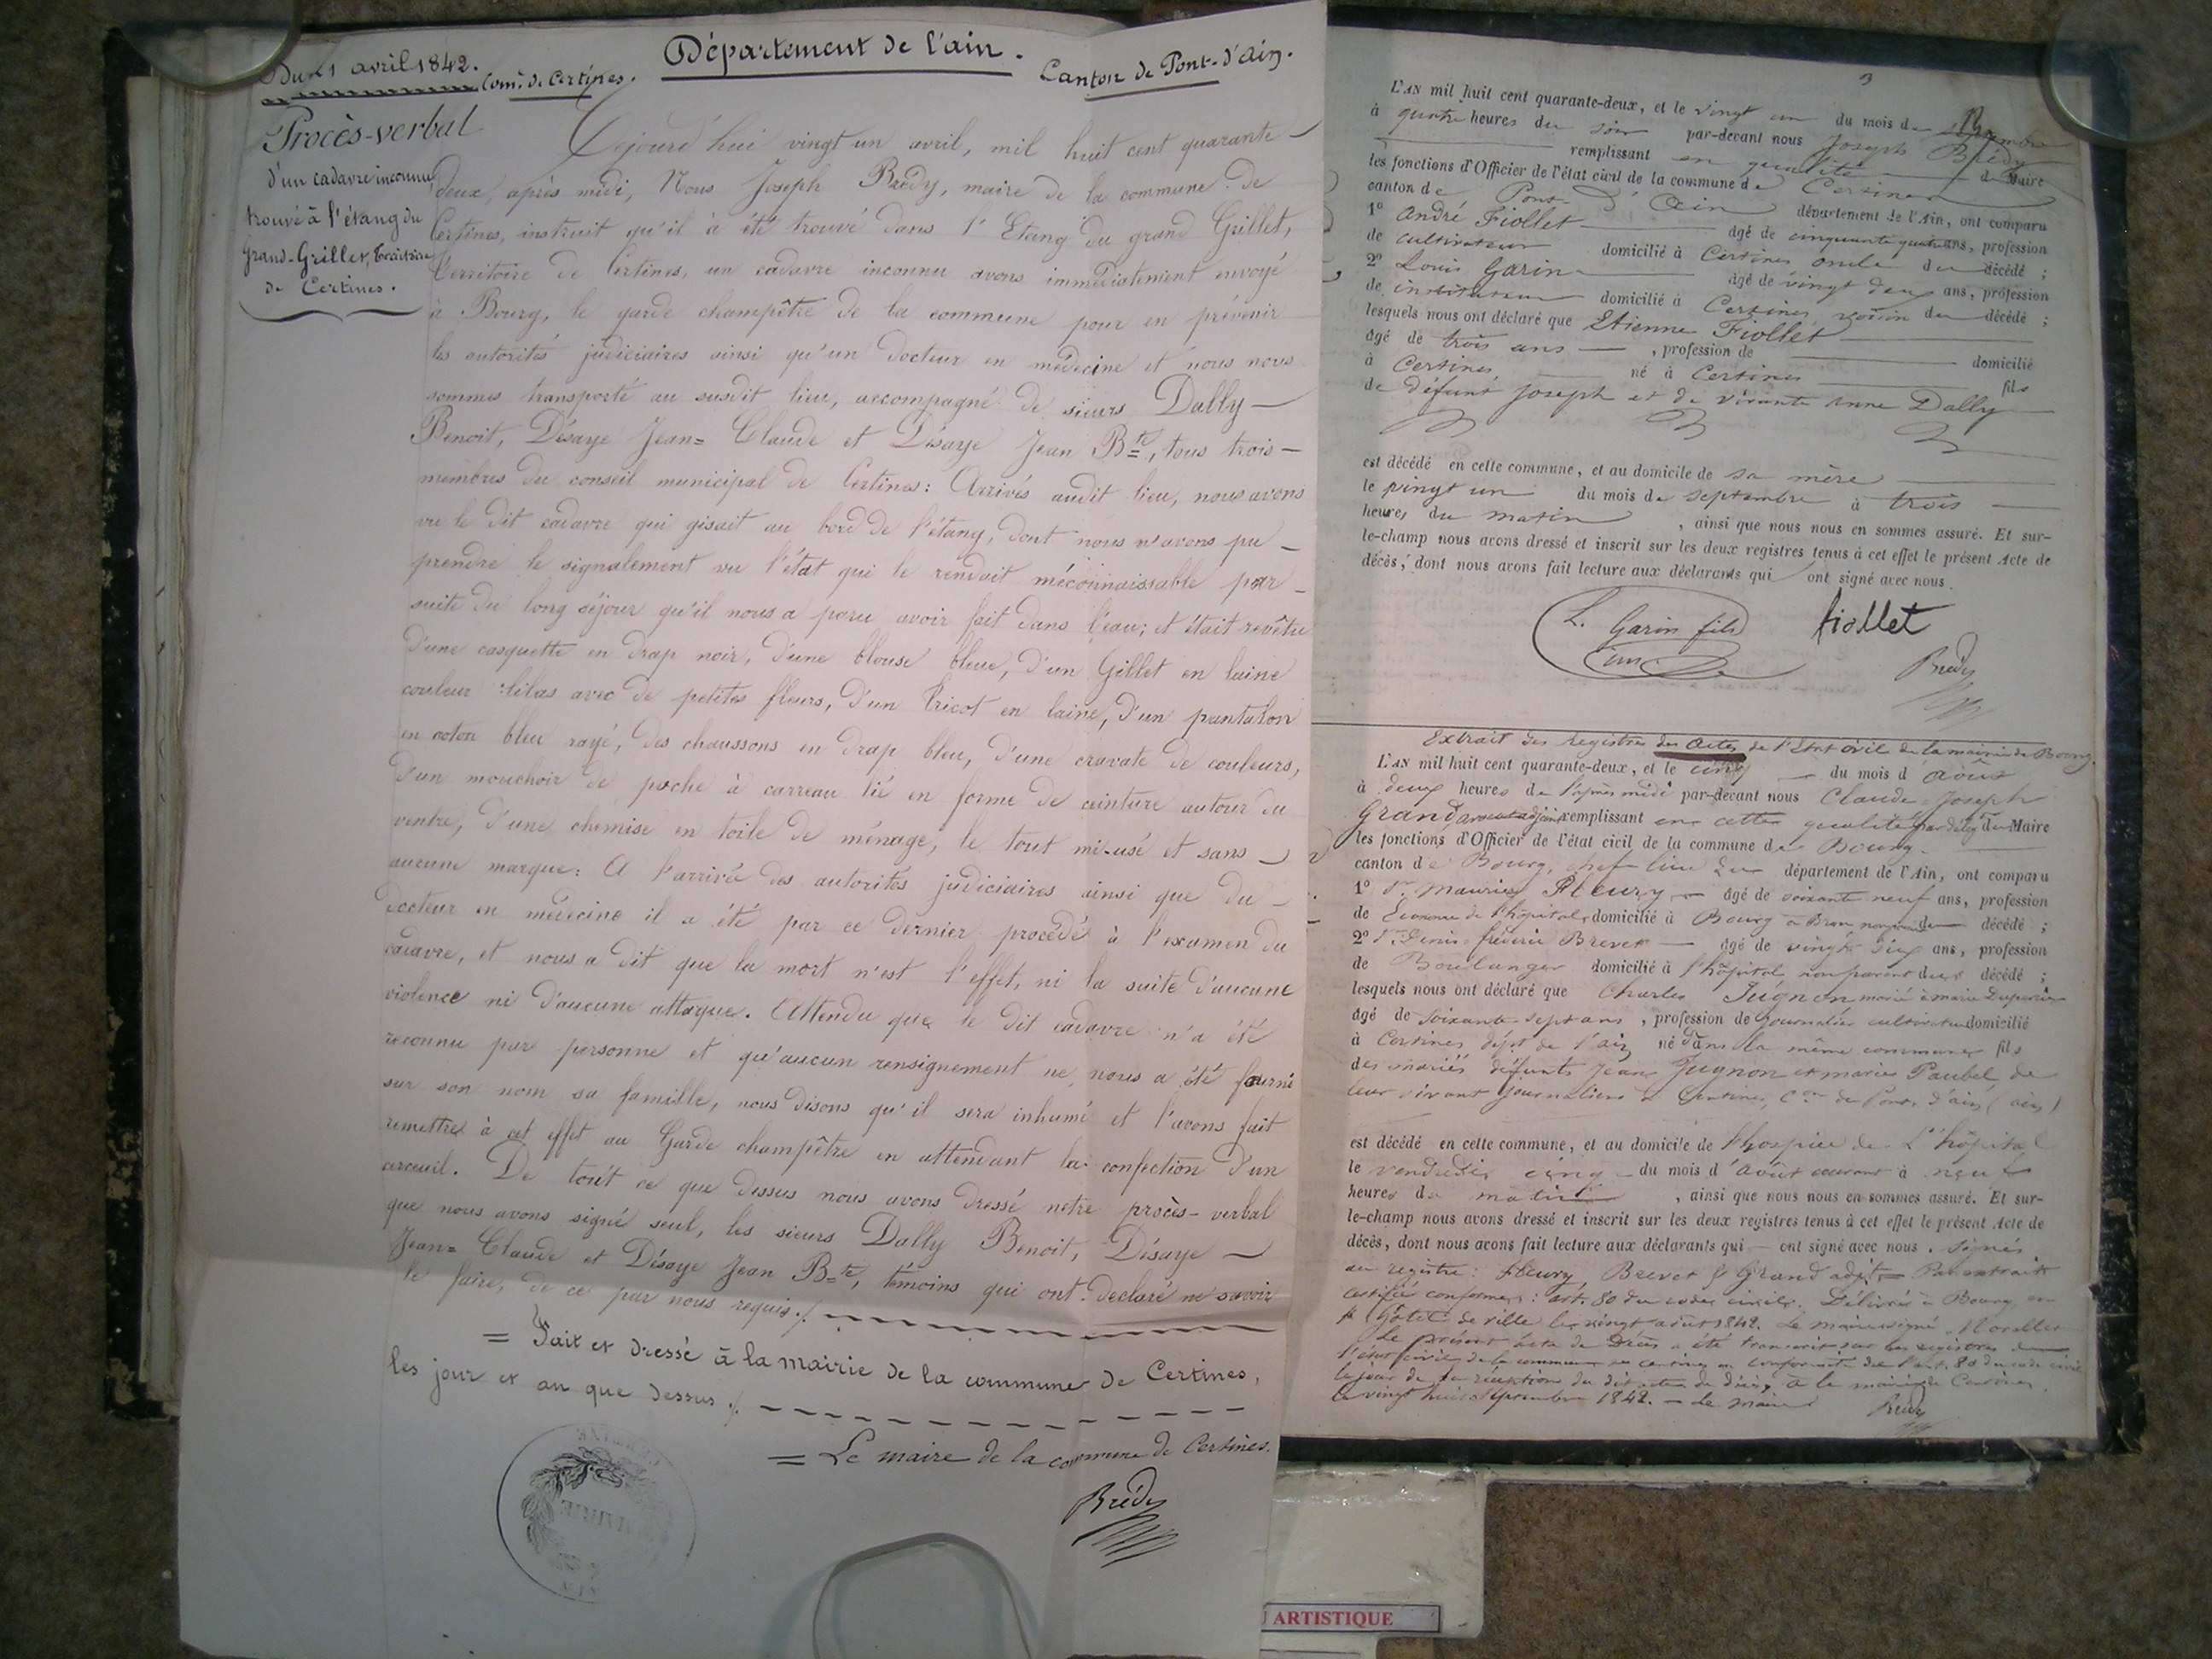 Du 21 avril 1842.
Com.ne de Certines.
Département de l'ain.
Canton de Pont-d'Ain.
Procès-verbal
d'un cadavre inconnu
trouvé à l'étang du
Grand-Grillet, territoire
de Certines.
Cejourd'hui vingt un avril, mil huit cent quarante
deux, après midi, Nous Joseph Brédy, maire de la commune de
Certines, instruit qu'il à été trouvé dans l'Etang du grand Grillet,
territoire de Certines, un cadavre inconnu avons immédiatement envoyé
à Bourg, le garde champêtre de la commune pour en prévenir
les autorités judiciaires ainsi qu'un docteur en médecine et nous nous
sommes transporté au susdit lieu, accompagné de sieurs Dally
Benoit, Désaye Jean-Claude et Désaye Jean Bte, tous trois
membres du conseil municipal de Certines: Arrivés audit lieu, nous avons
vu le dit cadavre qui gisait au bord de l'étang, dont nous n'avons pu
prendre le signalement vu l'état qui le rendait méconnaissable par
suite du long séjour qu'il nous a paru avoir fait dans l'eau; et était revêtu
d'une casquette en drap noir, d'une blouse bleue, d'un Gillet en laine
couleur lilas avec de petites fleurs, d'un tricot en laine, d'un pantalon
en coton bleu rayé, des chaussons en drap bleu, d'une cravate de couleurs,
d'un mouchoir de poche à carreau lié en forme de ceinture autour du
ventre, d'une chemise en toile de ménage, le tout mi-usé et sans
aucune marque: A l'arrivé des autorités judiciaires ainsi que du
docteur en médecine il a été par ce dernier procédé à l'examen du
cadavre, et nous a dit que la mort n'est l'effet, ni la suite d'aucune
violence ni d'aucune attaque. Attendu que le dit cadavre n'a été
reconnu par personne et qu'aucun rensignement ne nous a été fourni
sur son nom sa famille, nous disons qu'il sera inhumé et l'avons fait
remettre à cet effet au Garde champêtre en attendant la confection d'un
cerceuil. De tout ce que dessus nous avons dressé notre procès-verbal
que nous avons signé seul, les sieurs Dally Benoit, Désaye
Jean-Claude et Désaye Jean Bte, témoins qui ont déclaré ne savoir
le faire, de ce par nous requis./.
= Fait et dressé à la mairie de la commune de Certines,
les jour et an que dessus./.
= Le maire de la commune de Certines.
Brédy
3
L'AN mil huit cent quarante-deux, et le vingt un du mois de septembre
à quatre heures du soir par-devant nous Joseph Brédy
remplissant en qualité de Maire
les fonctions d'Officier de l'état civil de la commune de Certines
canton de Pont-d'Ain département de l'Ain, ont comparu
1° André Fiollet âgé de cinquante quatre ans, profession
de cultivateur domicilié à Certines oncle du décédé;
2° Louis Garin âgé de vingt deux ans, profession
de instituteur domicilié à Certines voisin du décédé;
lesquels nous ont déclaré que Etienne Fiollet
âgé de trois ans, profession de domicilié
à Certines né à Certines fils
de défunt Joseph et de vivante Anne Dally
est décédé en cette commune, et au domicile de sa mère
le vingt un du mois de septembre à trois
heures du matin, ainsi que nous nous en sommes assuré. Et sur-
le-champ nous avons dressé et inscrit sur les deux registres tenus à cet effet le présent Acte de
décès, dont nous avons fait lecture aux déclarants qui ont signé avec nous.
L. Garin fils
fiollet
Brédy
Extrait des registres des actes de l'Etat civil de la mairie de Bourg.
L'AN mil huit cent quarante-deux, et le cinq du mois d'août
à deux heures de l'après midi par-devant nous Claude Joseph
Grand remplissant en cette qualité Maire
les fonctions d'Officier de l'état civil de la commune de Bourg
canton de Bourg, chef lieu du département de l'Ain, ont comparu
1° Sr. Maurice Fleury âgé de soixante neuf ans, profession
de Econome de l'hôpital, domicilié à Bourg décédé;
2° Sr. Denis frédéric Brevet âgé de vingt six ans, profession
de Boulanger domicilié à l'hôpital non parent du décédé;
lesquels nous ont déclaré que Charles Jugnon marié à marie
âgé de soixante-sept ans, profession de journalier cultivateur domicilié
à Certines dépt de l'ain né dans la même commune fils
des mariés défunts Jean Jugnon et marie Paubel, de
leur vivant journaliers à Certines, Con de Pont d'ain (ain)
est décédé en cette commune, et au domicile de l'hospice de L'hôpital
le vendredi cinq du mois d'août courant à neuf
heures du matin, ainsi que nous nous en sommes assuré. Et sur-
le-champ nous avons dressé et inscrit sur les deux registres tenus à cet effet le présent Acte de
décès, dont nous avons fait lecture aux déclarants qui ont signé avec nous. Signés
au registre: Fleury, Brevet & Grand adjt. Par extrait
certifié conforme: art. 80 du code civil. Délivré à Bourg en
l'hôtel de ville le vingt août 1842. Le maire signé
Le présent acte de Décès a été transcrit sur les registres de
l'état civil de la commune de Certines en conformité de l'art. 80 du code civil
le jour de la réception du dit acte de décès, à la mairie de Certines
le vingt huit septembre 1842. - Le maire
Brédy
ARTISTIQUE